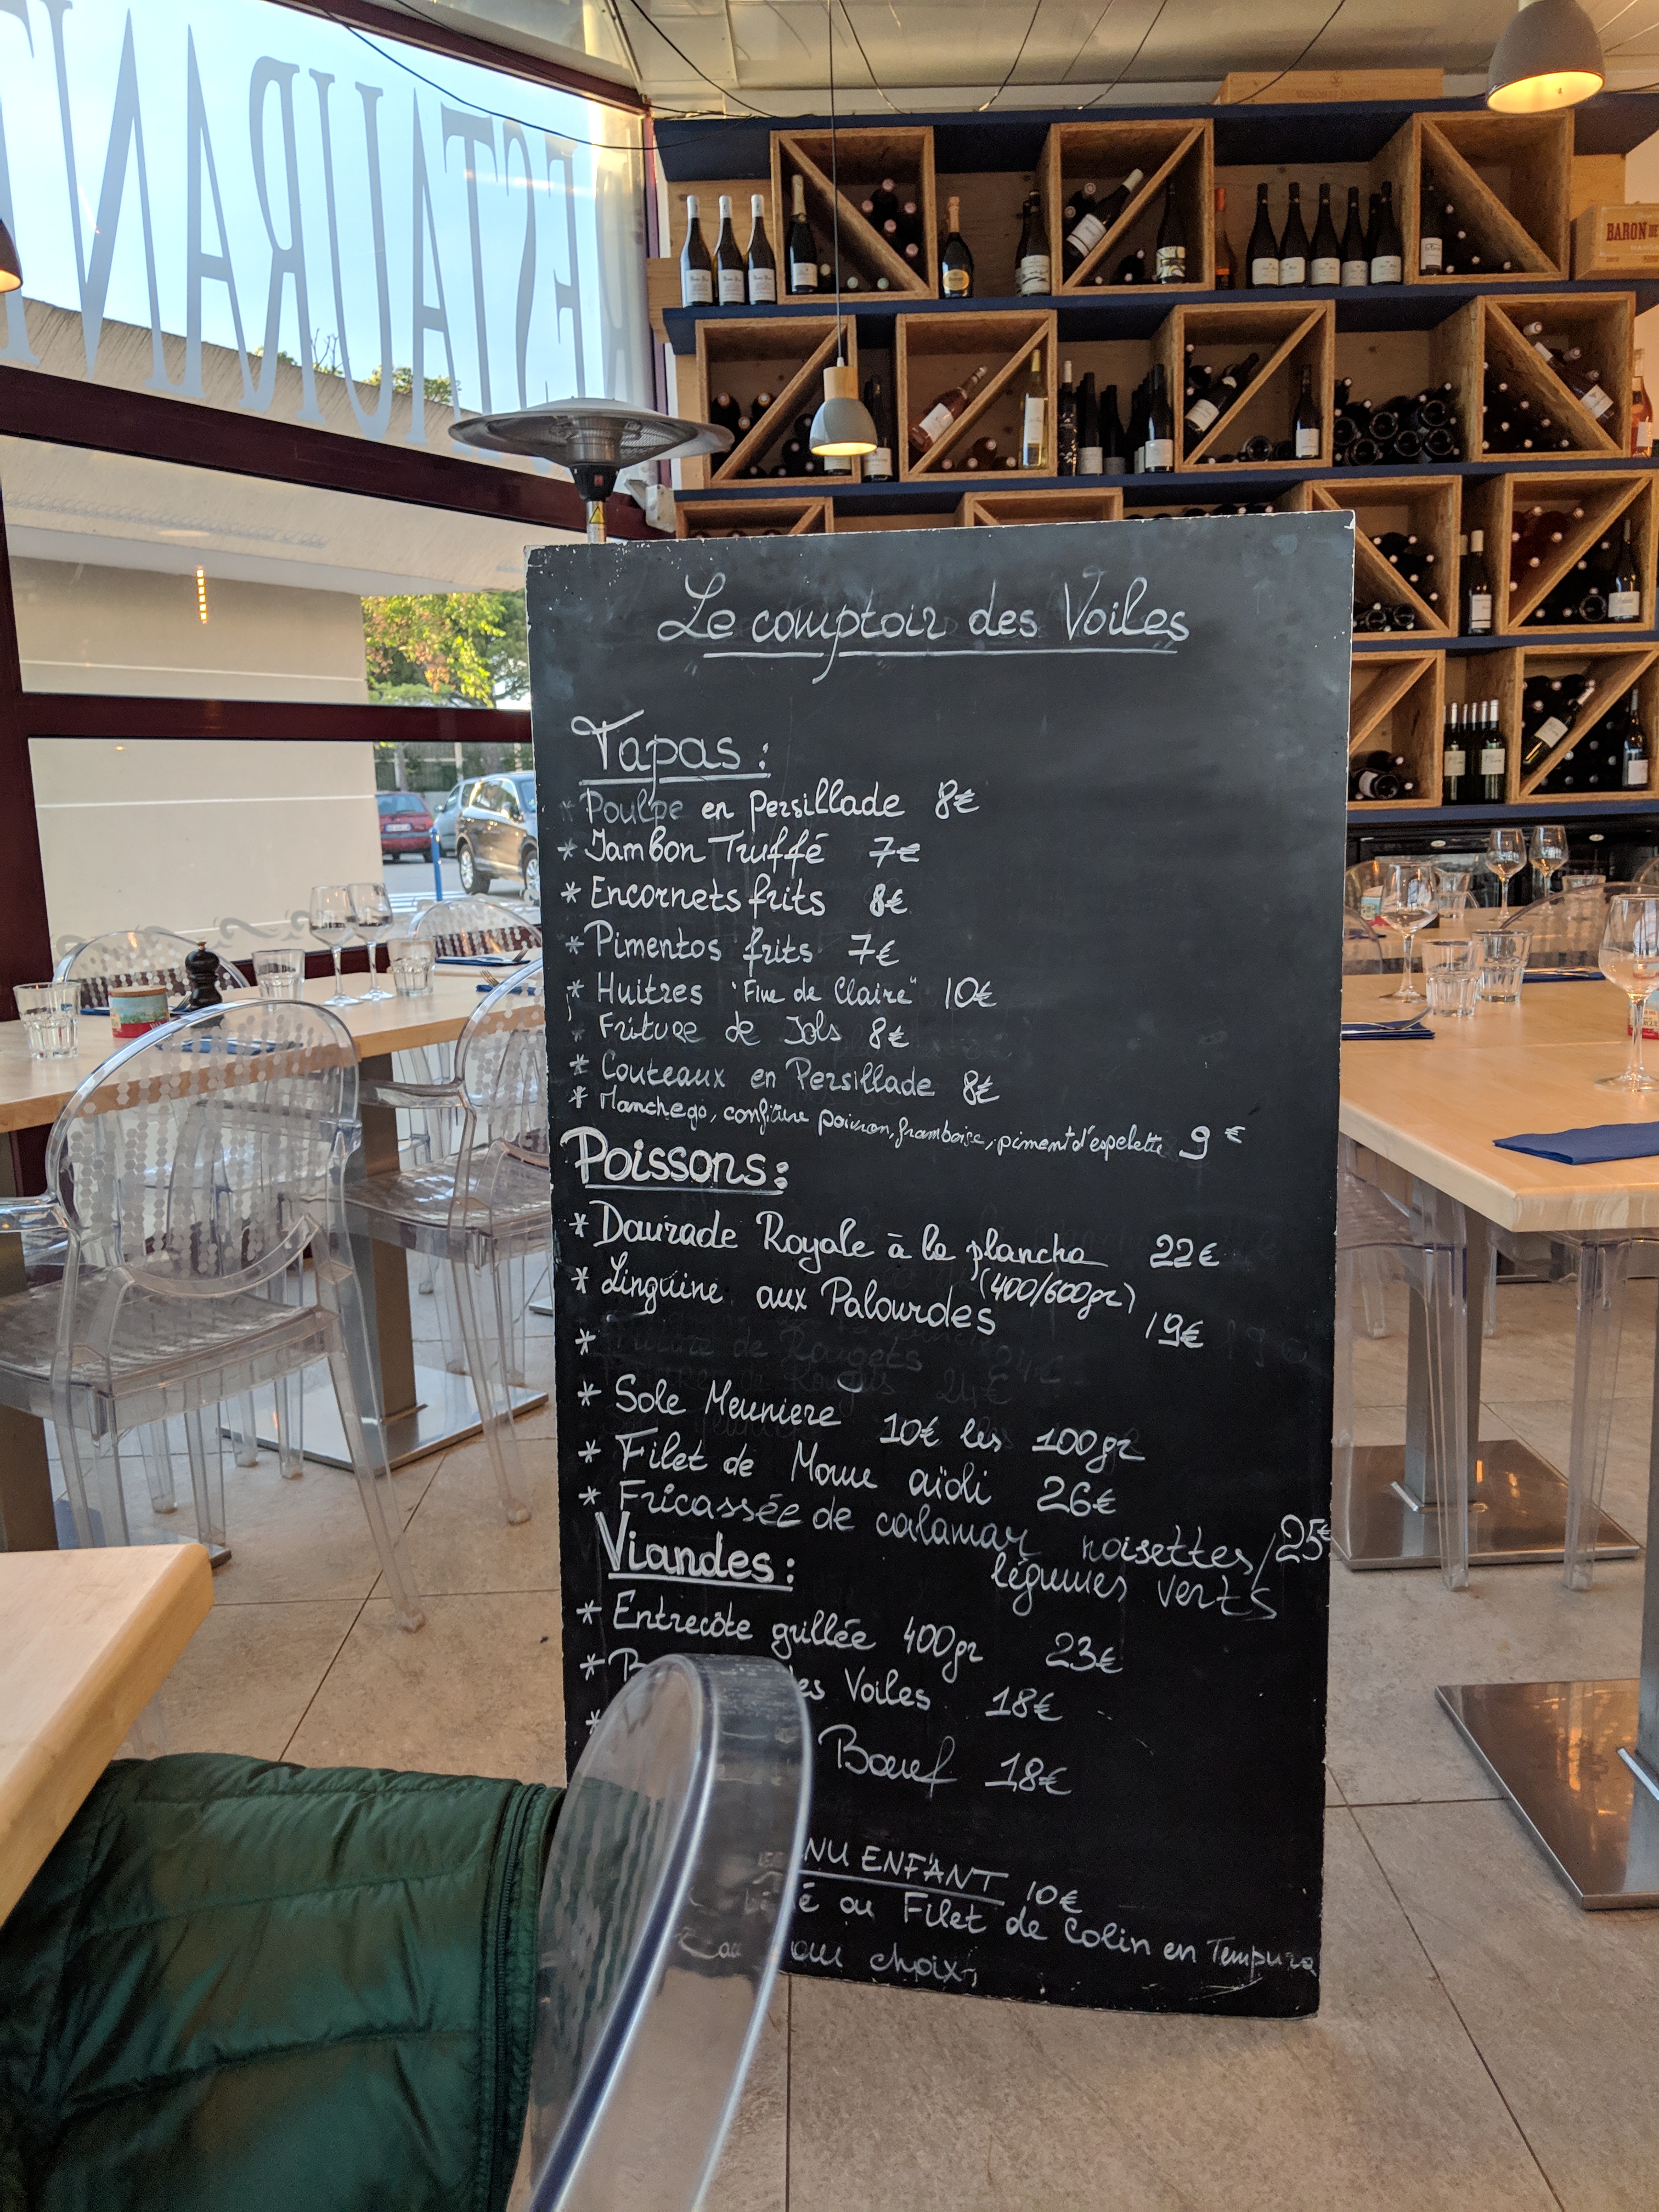 RESTAURANT
BARON DE
Le comptoir des Voiles
Tapas :
* Poulpe en Persillade 8€
* Jambon Truffé 7€
* Encornets frits 8€
* Pimentos frits 7€
* Huitres "Fine de Claire" 10€
* Friture de Jols 8€
* Couteaux en Persillade 8€
* Manchego, confiture poivron, framboise, piment d'espelette 9€
Poissons :
* Daurade Royale à la plancha 22€
(400/600gr)
* Linguine aux Palourdes 19€
*
* Sole Meuniere 10€ les 100gr
* Filet de Morue aïoli 26€
* Fricassée de calamar noisettes/ 25€
légumes verts
Viandes :
* Entrecôte grillée 400gr 23€
* es Voiles 18€
* Bœuf 18€
NU ENFANT 10€
é ou Filet de Colin en Tempura
au choix